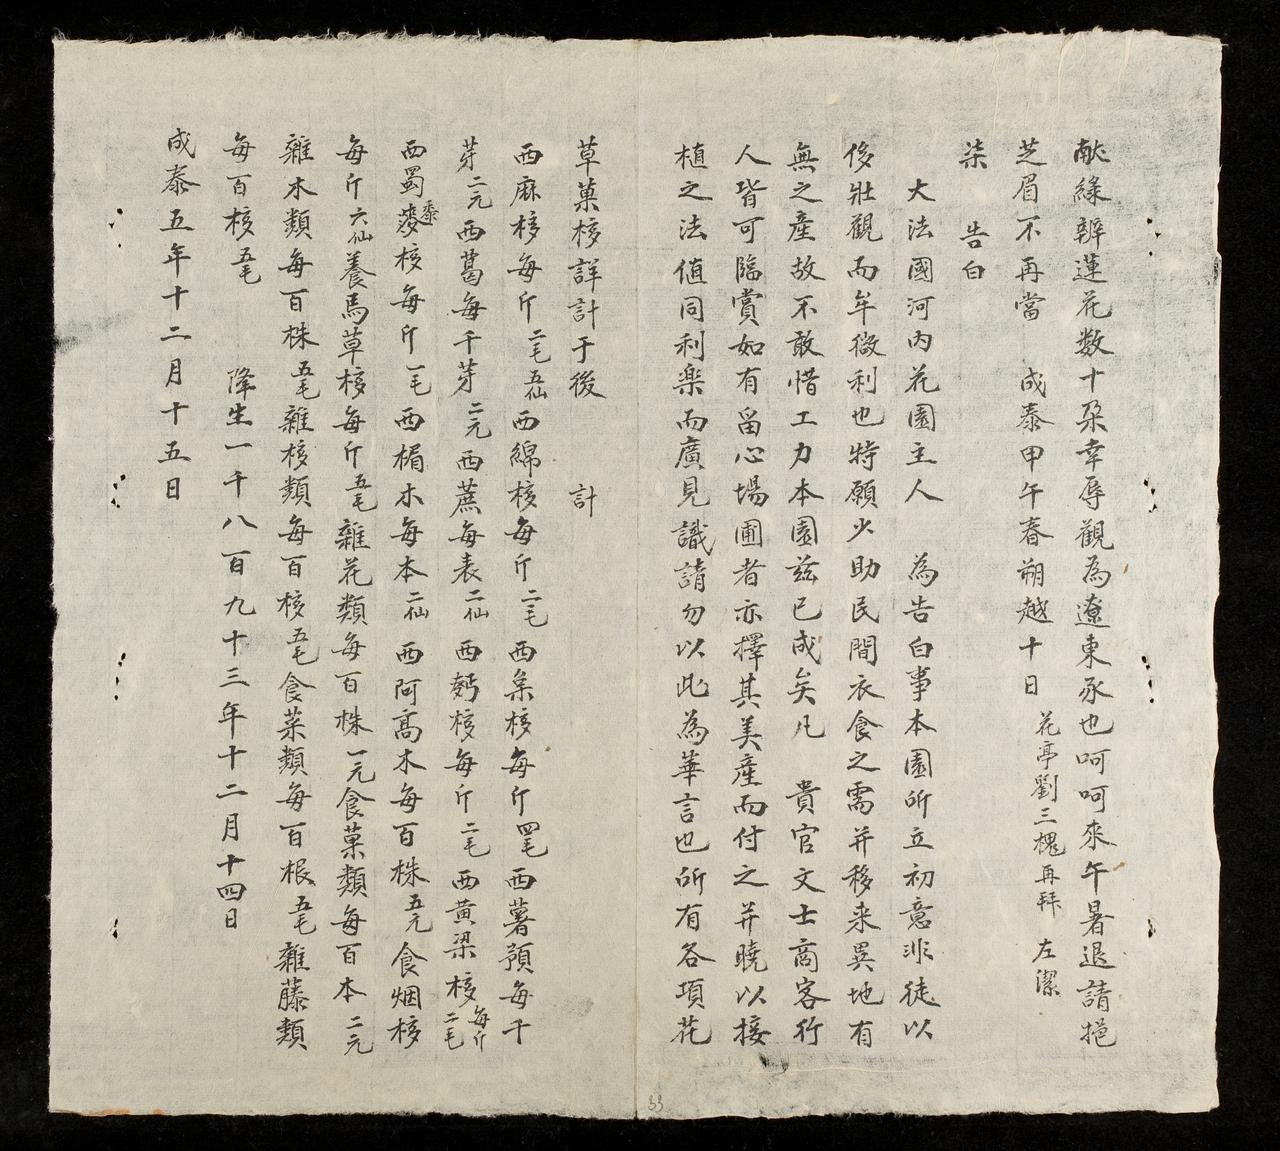 献緣辨蓮花数十朶幸辱觀為遼東豕也呵呵來午暑退請挹
芝眉不再當 成泰甲午春朔越十日 花亭劉三槐再拜 左潔
柒 告白
大法國河内花園主人 為告白事本園所立初意非徒以
侈壯觀而牟微利也特願少助民間衣食之需并移来異地有
無之產故不敢惜工力本園茲已成矣凡 貴官文士商客行
人皆可臨賞如有留心場圃者亦擇其美產而付之并曉以接
植之法值同利樂而廣見識請勿以此為華言也所有各項花
草菓核詳計于後 計
西麻核每斤二毛五仙西綿核每斤二毛西枲核每斤四毛西薯預每千
芽二元西葛每千芽二元西蔗每表二仙西麪核每斤二毛西黄梁核每斤二毛
西蜀黍核每斤一毛西楣木每本二仙西阿高木每百株五元食烟核
每斤六仙養馬草核每斤五毛雜花類每百株一元食菓類每百本二元
雜木類每百株五毛雜核類每百核五毛食菜類每百根五毛雜藤類
每百核五毛 降生一千八百九十三年十二月十四日
成泰五年十二月十五日
33